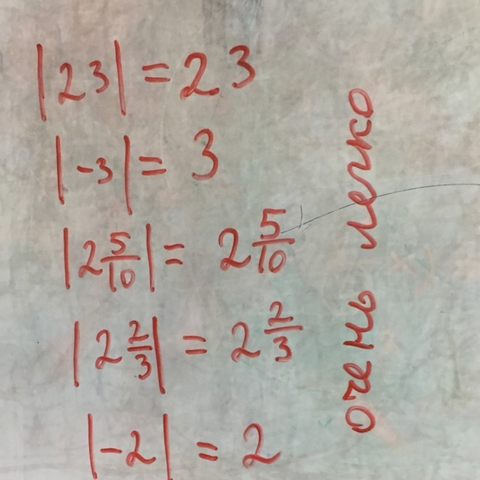 |23| = 23
|-3| = 3
|2 5/10| = 2 5/10
|2 2/3| = 2 2/3
|-2| = 2
очень легко